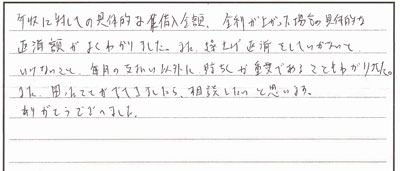 年収に対しての具体的な借入金額、金利が上がった場合の具体的な
返済額がよくわかりました。また、繰上げ返済をしていかないと
いけないこと、毎月の支払い以外に貯ちくが重要であることもわかりました。
また、困ったことがでてきましたら、相談したいと思います。
ありがとうございました。